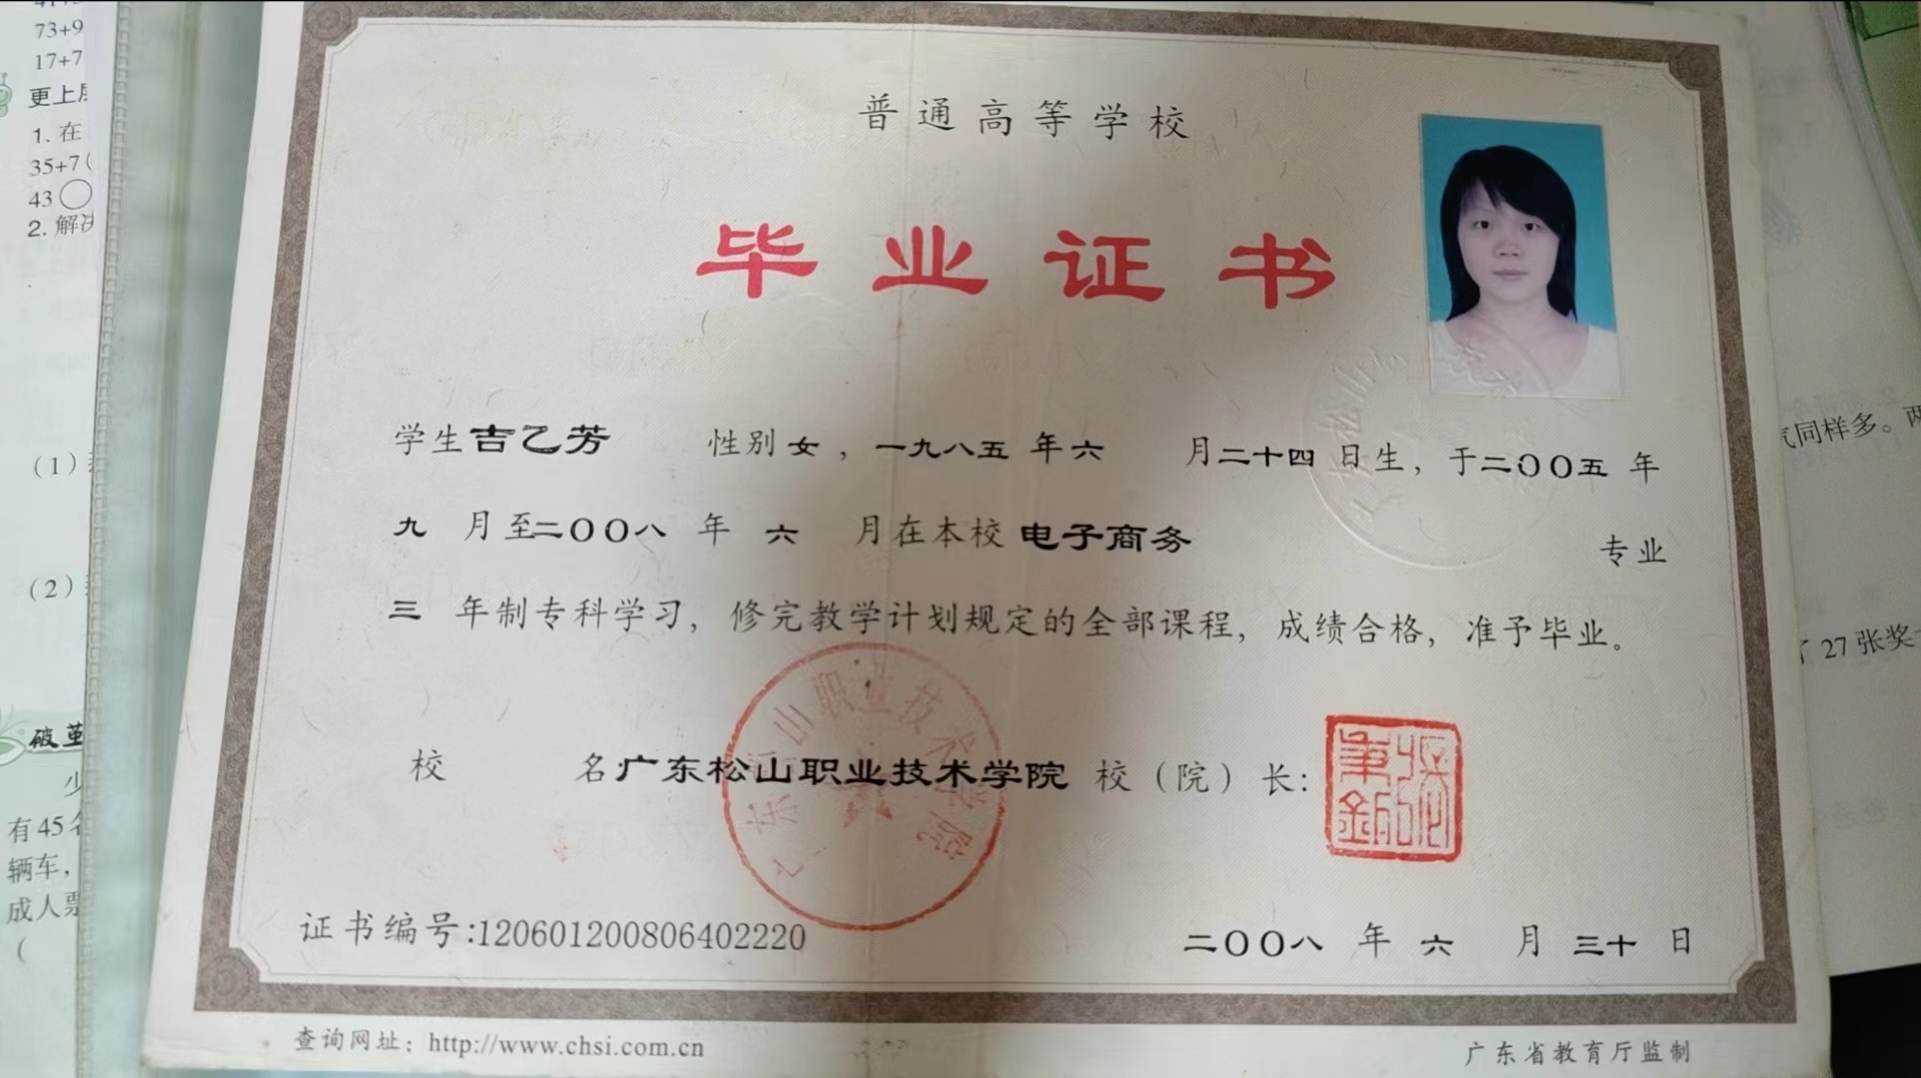 普通高等学校
毕业证书
学生吉乙芳 性别女，一九八五年六月二十四日生，于二〇〇五年
九月至二〇〇八年六月在本校电子商务专业
三年制专科学习，修完教学计划规定的全部课程，成绩合格，准予毕业。
校名广东松山职业技术学院 校（院）长：
广东松山职业技术学院
证书编号:120601200806402220
二〇〇八年六月三十日
查询网址：http://www.chsi.com.cn
广东省教育厅监制
73+9
17+7
更上
1. 在
35+7(
43
2. 解决
(1)
(2)
破茧
少
有45名
辆车，
成人票
(
同样多。两
27张奖